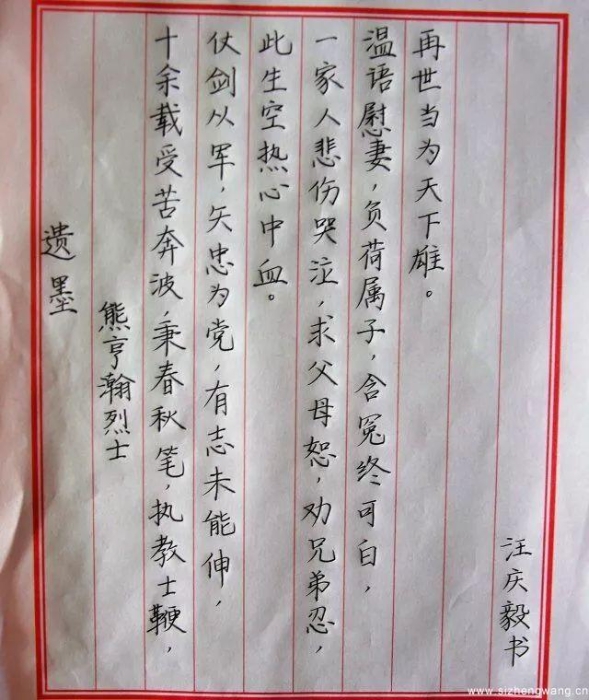 遗墨
熊亨瀚烈士
十余载受苦奔波，秉春秋笔，执教士鞭，
仗剑从军，矢忠为党，有志未能伸，
此生空热心中血。
一家人悲伤哭泣，求父母恕，劝兄弟忍，
温语慰妻，负荷属子，含冤终可白，
再世当为天下雄。
汪庆毅书
www.sizhengwang.cn